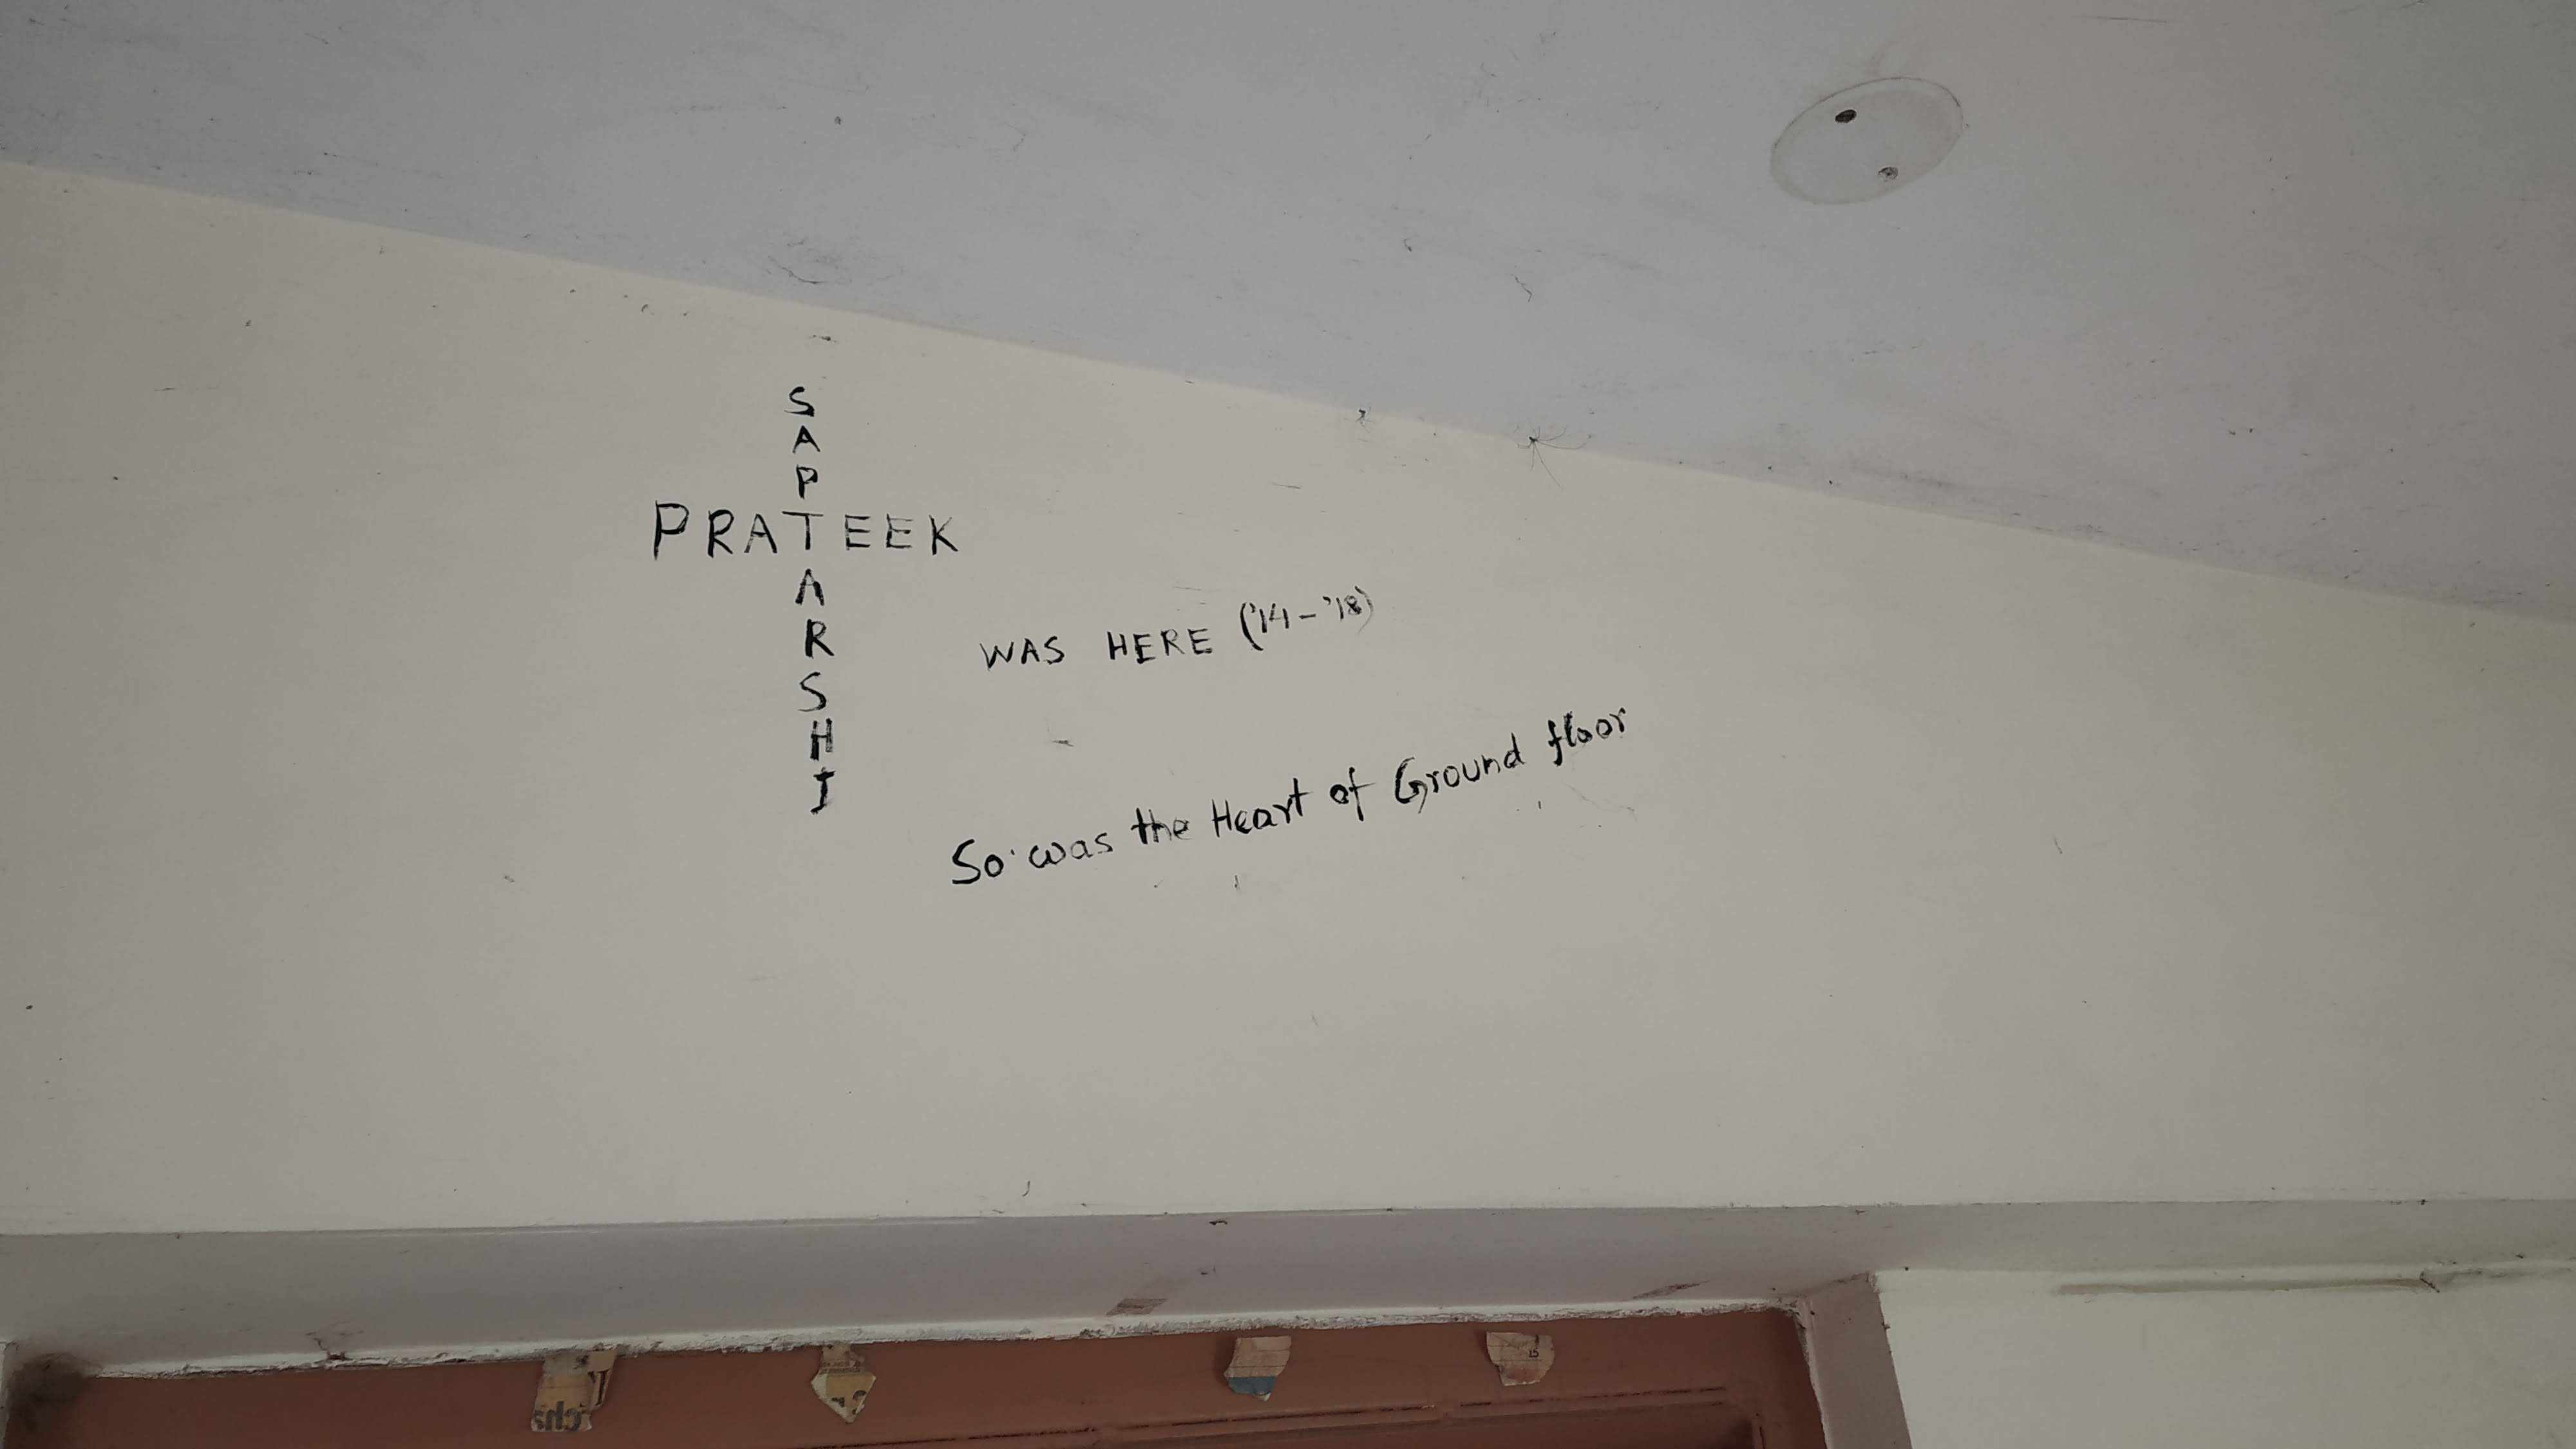 SAPTARSHI
PRATEEK
WAS HERE ('14-'18)
So was the Heart of Ground floor